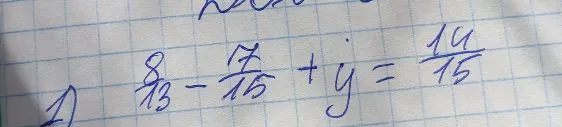 1) 8/13 - 17/15 + y = 14/15